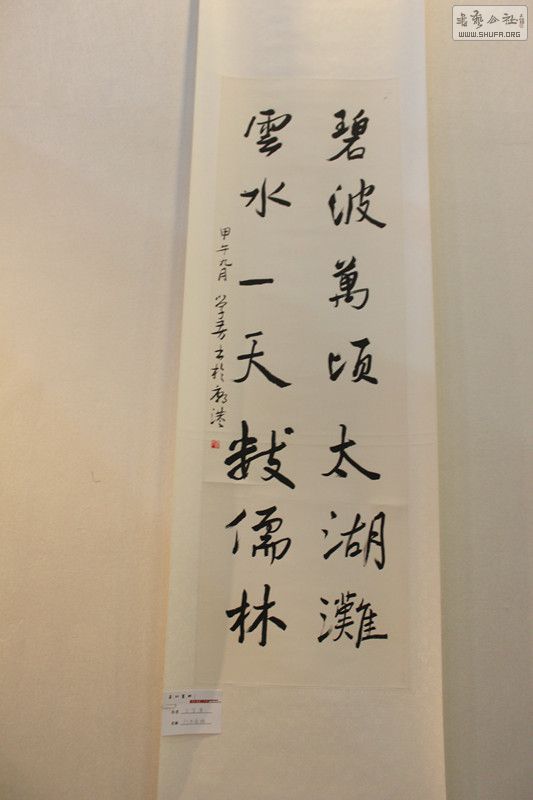 碧波萬頃太湖灘
雲水一天数儒林
甲午九月
書藝公社
WWW.SHUFA.ORG